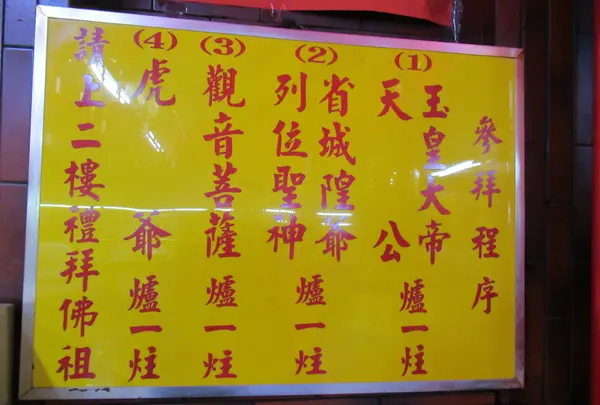 參拜程序
(1)
玉皇大帝
天公
爐一炷
(2)
省城隍爺
列位聖神
爐一炷
(3)
觀音菩薩
爐一炷
(4)
虎爺
爐一炷
請上二樓禮拜佛祖